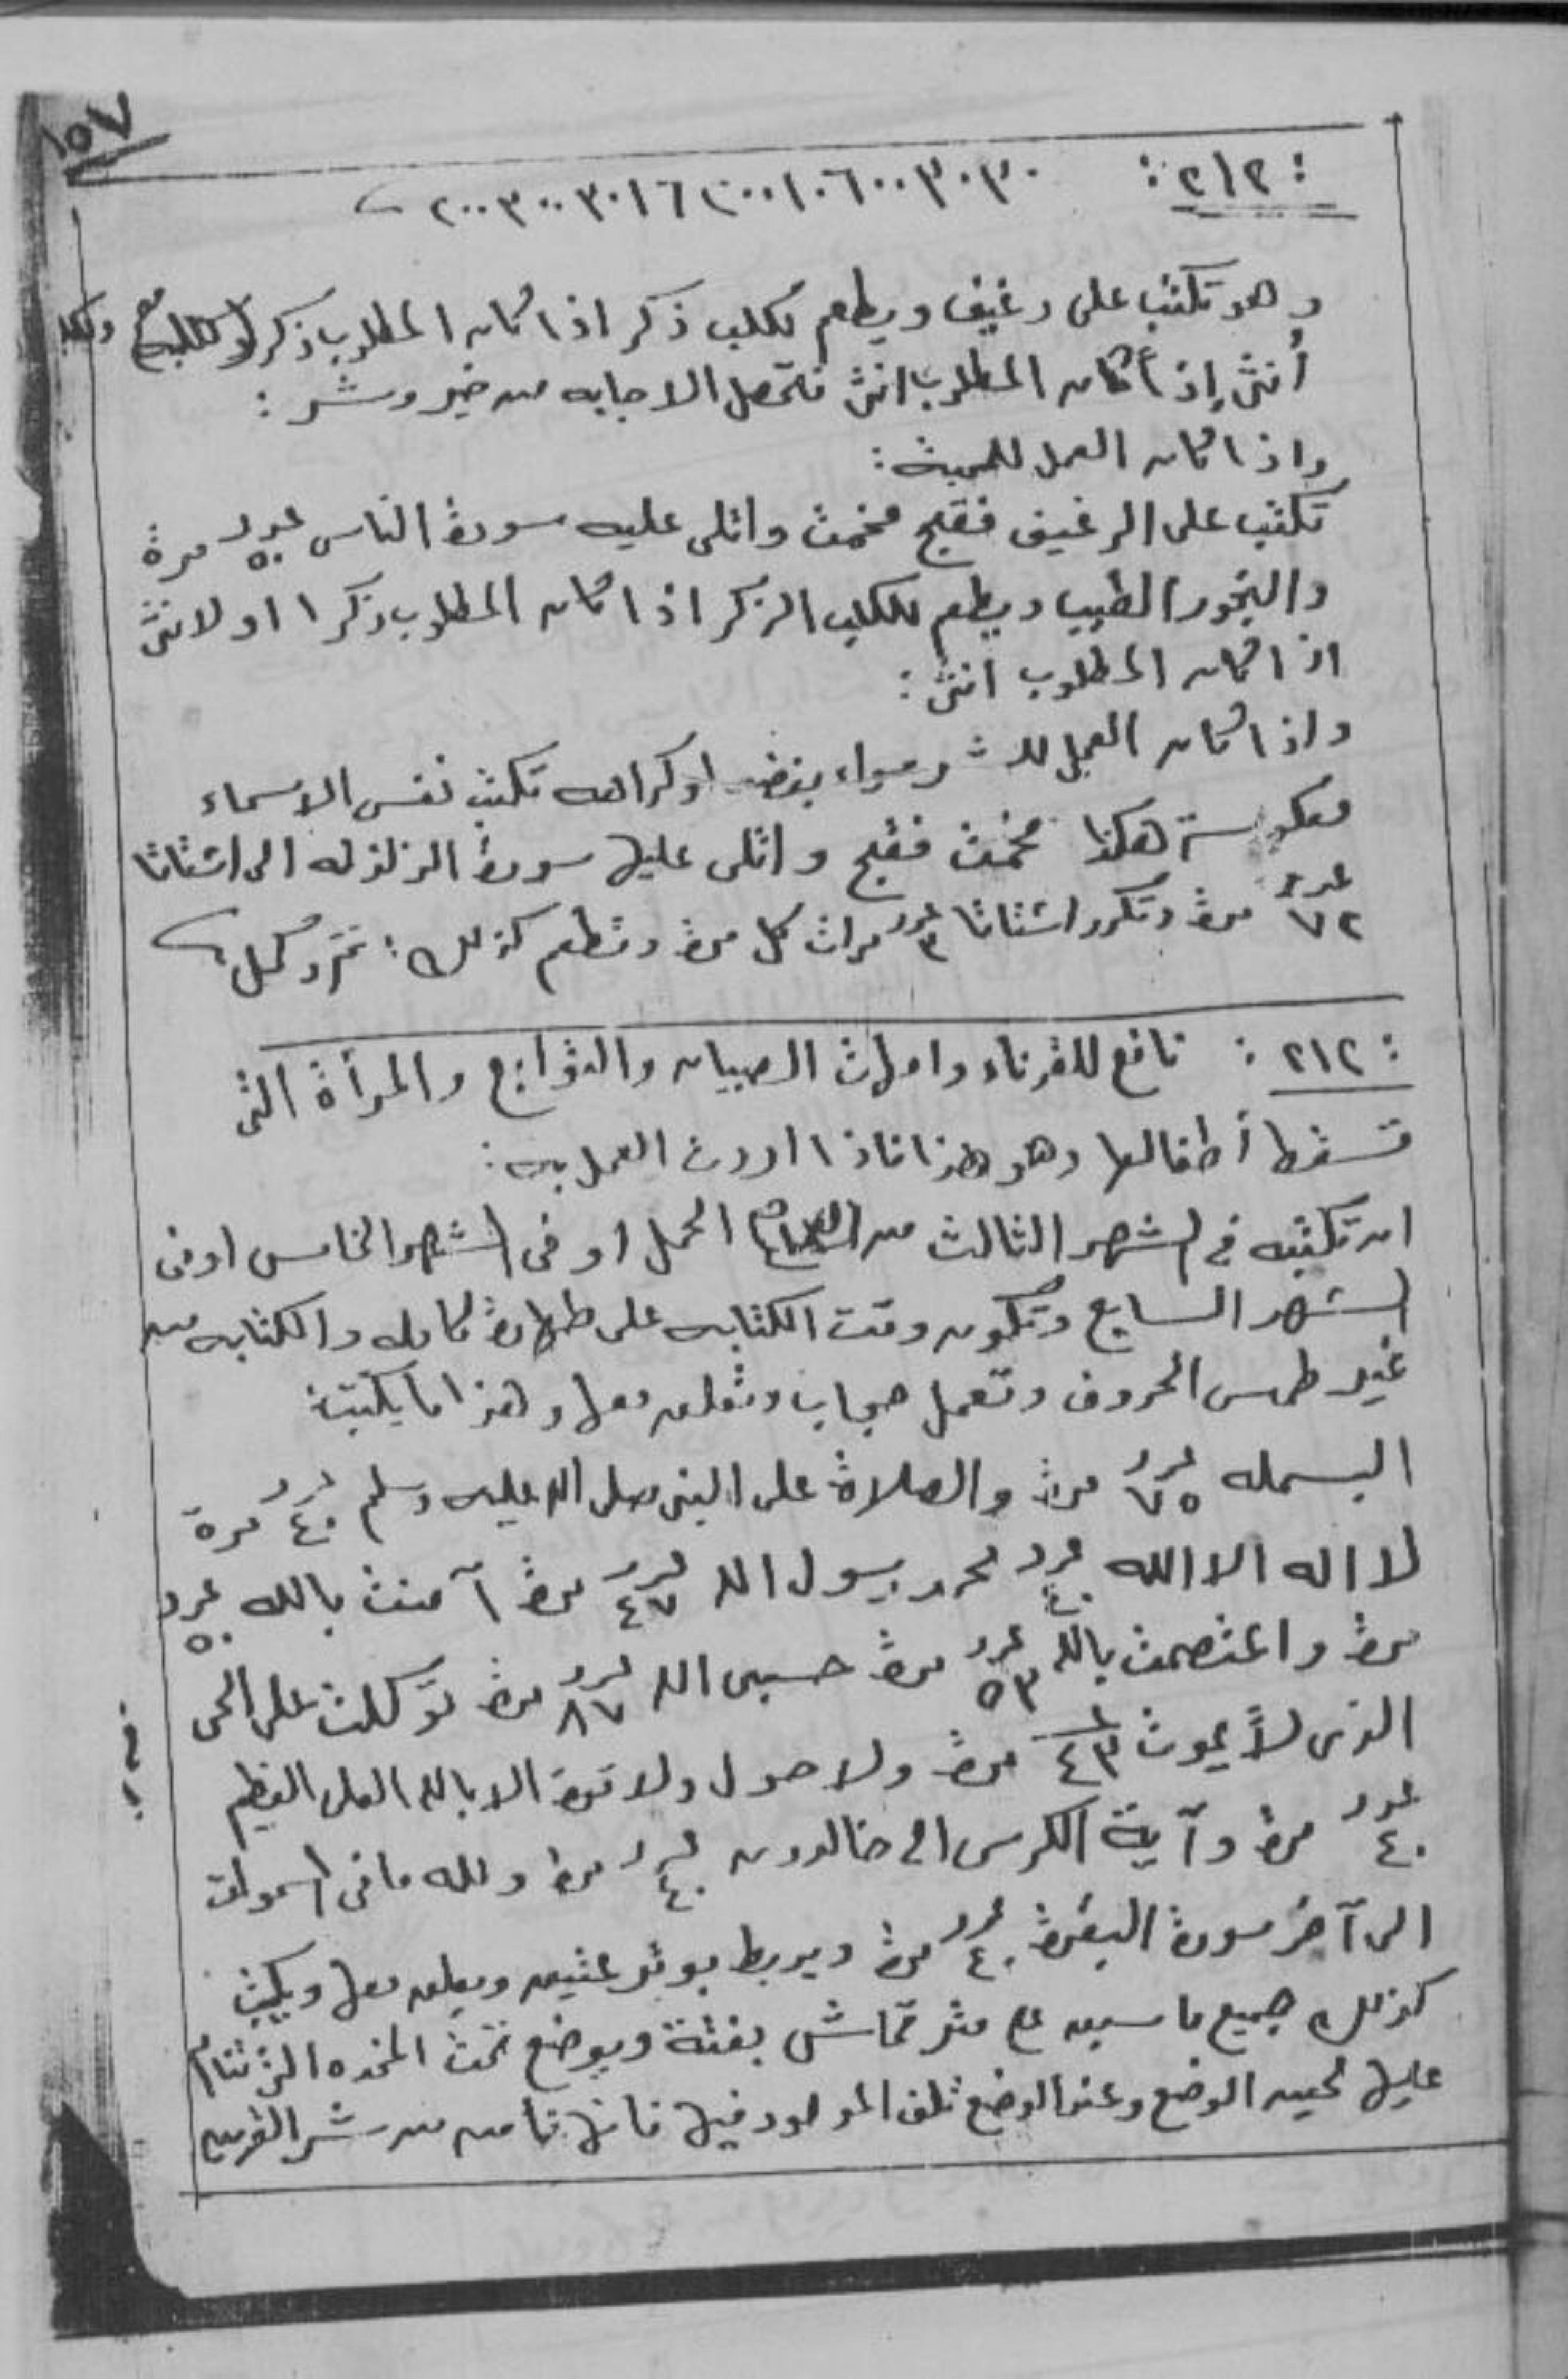 ١٥٧
: ٢١٢ : ٢٠٠٣٠٠٣٠١٦٢٠٠١٠٦٠٠٣٠٣٠
وهو تكتب على رغيف ويطعم لكلب ذكر اذا كان المطلوب ذكر او
أنثى إذا كان المطلوب انثى فتحصل الاجابه من خير وشر :
واذا كان العمل للمحبة :
تكتب على الرغيف فقج مخمت واتلى عليه سورة الناس عدد ٥٠ مرة
والبخور الطيب ويطعم للكلب الذكر اذا كان المطلوب ذكرا او لانثى
اذا كان المطلوب انثى :
واذا كان العمل للشر سواء بغضه او كراهه تكتب نفس الاسماء
معكوسة هكذا مخمت فقج واتلى عليها سورة الزلزله الى اشتاتا
عدد ٧٢ مرة وتكرر اشتاتا عدد ٣ مرات كل مرة وتطعم كذلك :
: ٢١٢ : نافع للقرناء وامهات الصبيان والتوابع والمرأة التى
تسقط أطفالها وهو هذا فاذا اردت العمل به :
ان تكتبه في الشهر الثالث من الحمل او فى الشهر الخامس اوفى
الشهر السابع وتكون وقت الكتابه على طهارة كامله والكتابه من
غير طمس الحروف وتعمل حجاب وتعلق معها وهذا ما يكتب :
البسمله عدد ٧٥ مرة والصلاة على النبى صلى الله عليه وسلم عدد ٤٠ مرة
لا اله الا الله عدد ٤٠ محمد رسول الله عدد ٤٧ مرة آمنت بالله عدد ٥٠
مرة واعتصمت بالله عدد ٥٣ مرة حسبى الله عدد ٨٧ مرة توكلت على الحى
الذى لا يموت ٤٣ مرة ولا حول ولا قوة الا بالله العلى العظيم
عدد ٤٠ مرة وآية الكرسى الى خالدون عدد ٤٠ مرة ولله مافى السموات
الى آخر سورة البقرة عدد ٤٠ مرة ويربط ويعلق معها ويكتب
كذلك جميع ما سبق ع متر قماش بفتة ويوضع تحت المخده التى تنام
عليها لحين الوضع وعند الوضع تلف المولود فيها فانها تأمن من شر القرين